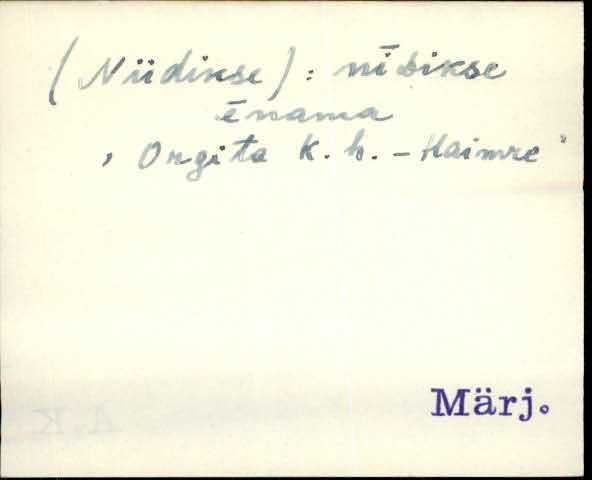 (Niidikse): nīdikse
ēnama
, Orgita k. h. - Haimre
Märj.